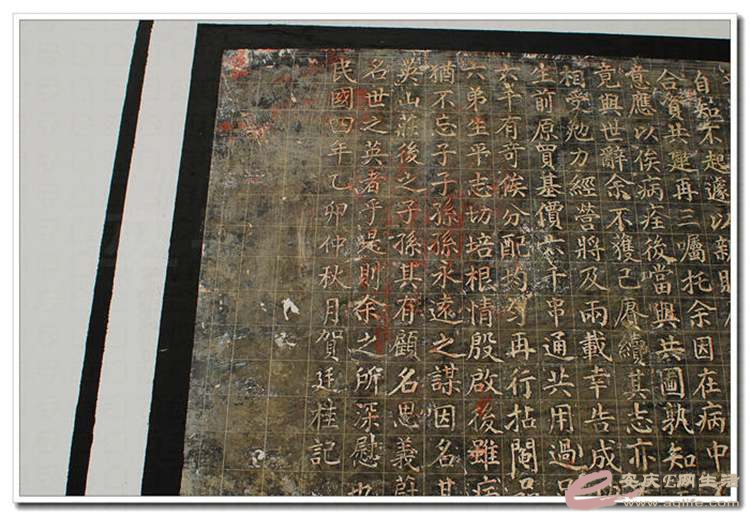 自知不起遽以新
合資共建再三囑托余因在病中
意應以俟病痊後當與共圖孰知
竟與世辭余不獲已賡續其志亦
相學勉力經營將及兩載幸告成
生前原買基價六千串通共用過
六年有苛候分配均勻再行拈鬮品
六弟生平志切培根情殷啟後雖病
猶不忘子子孫孫永遠之謀因名其
英山莊後之子孫其有顧名思義蔚
名世之英者乎是則余之所深慰也
民國四年乙卯仲秋月賀廷桂記
安庆E网生活
www.aqlife.com